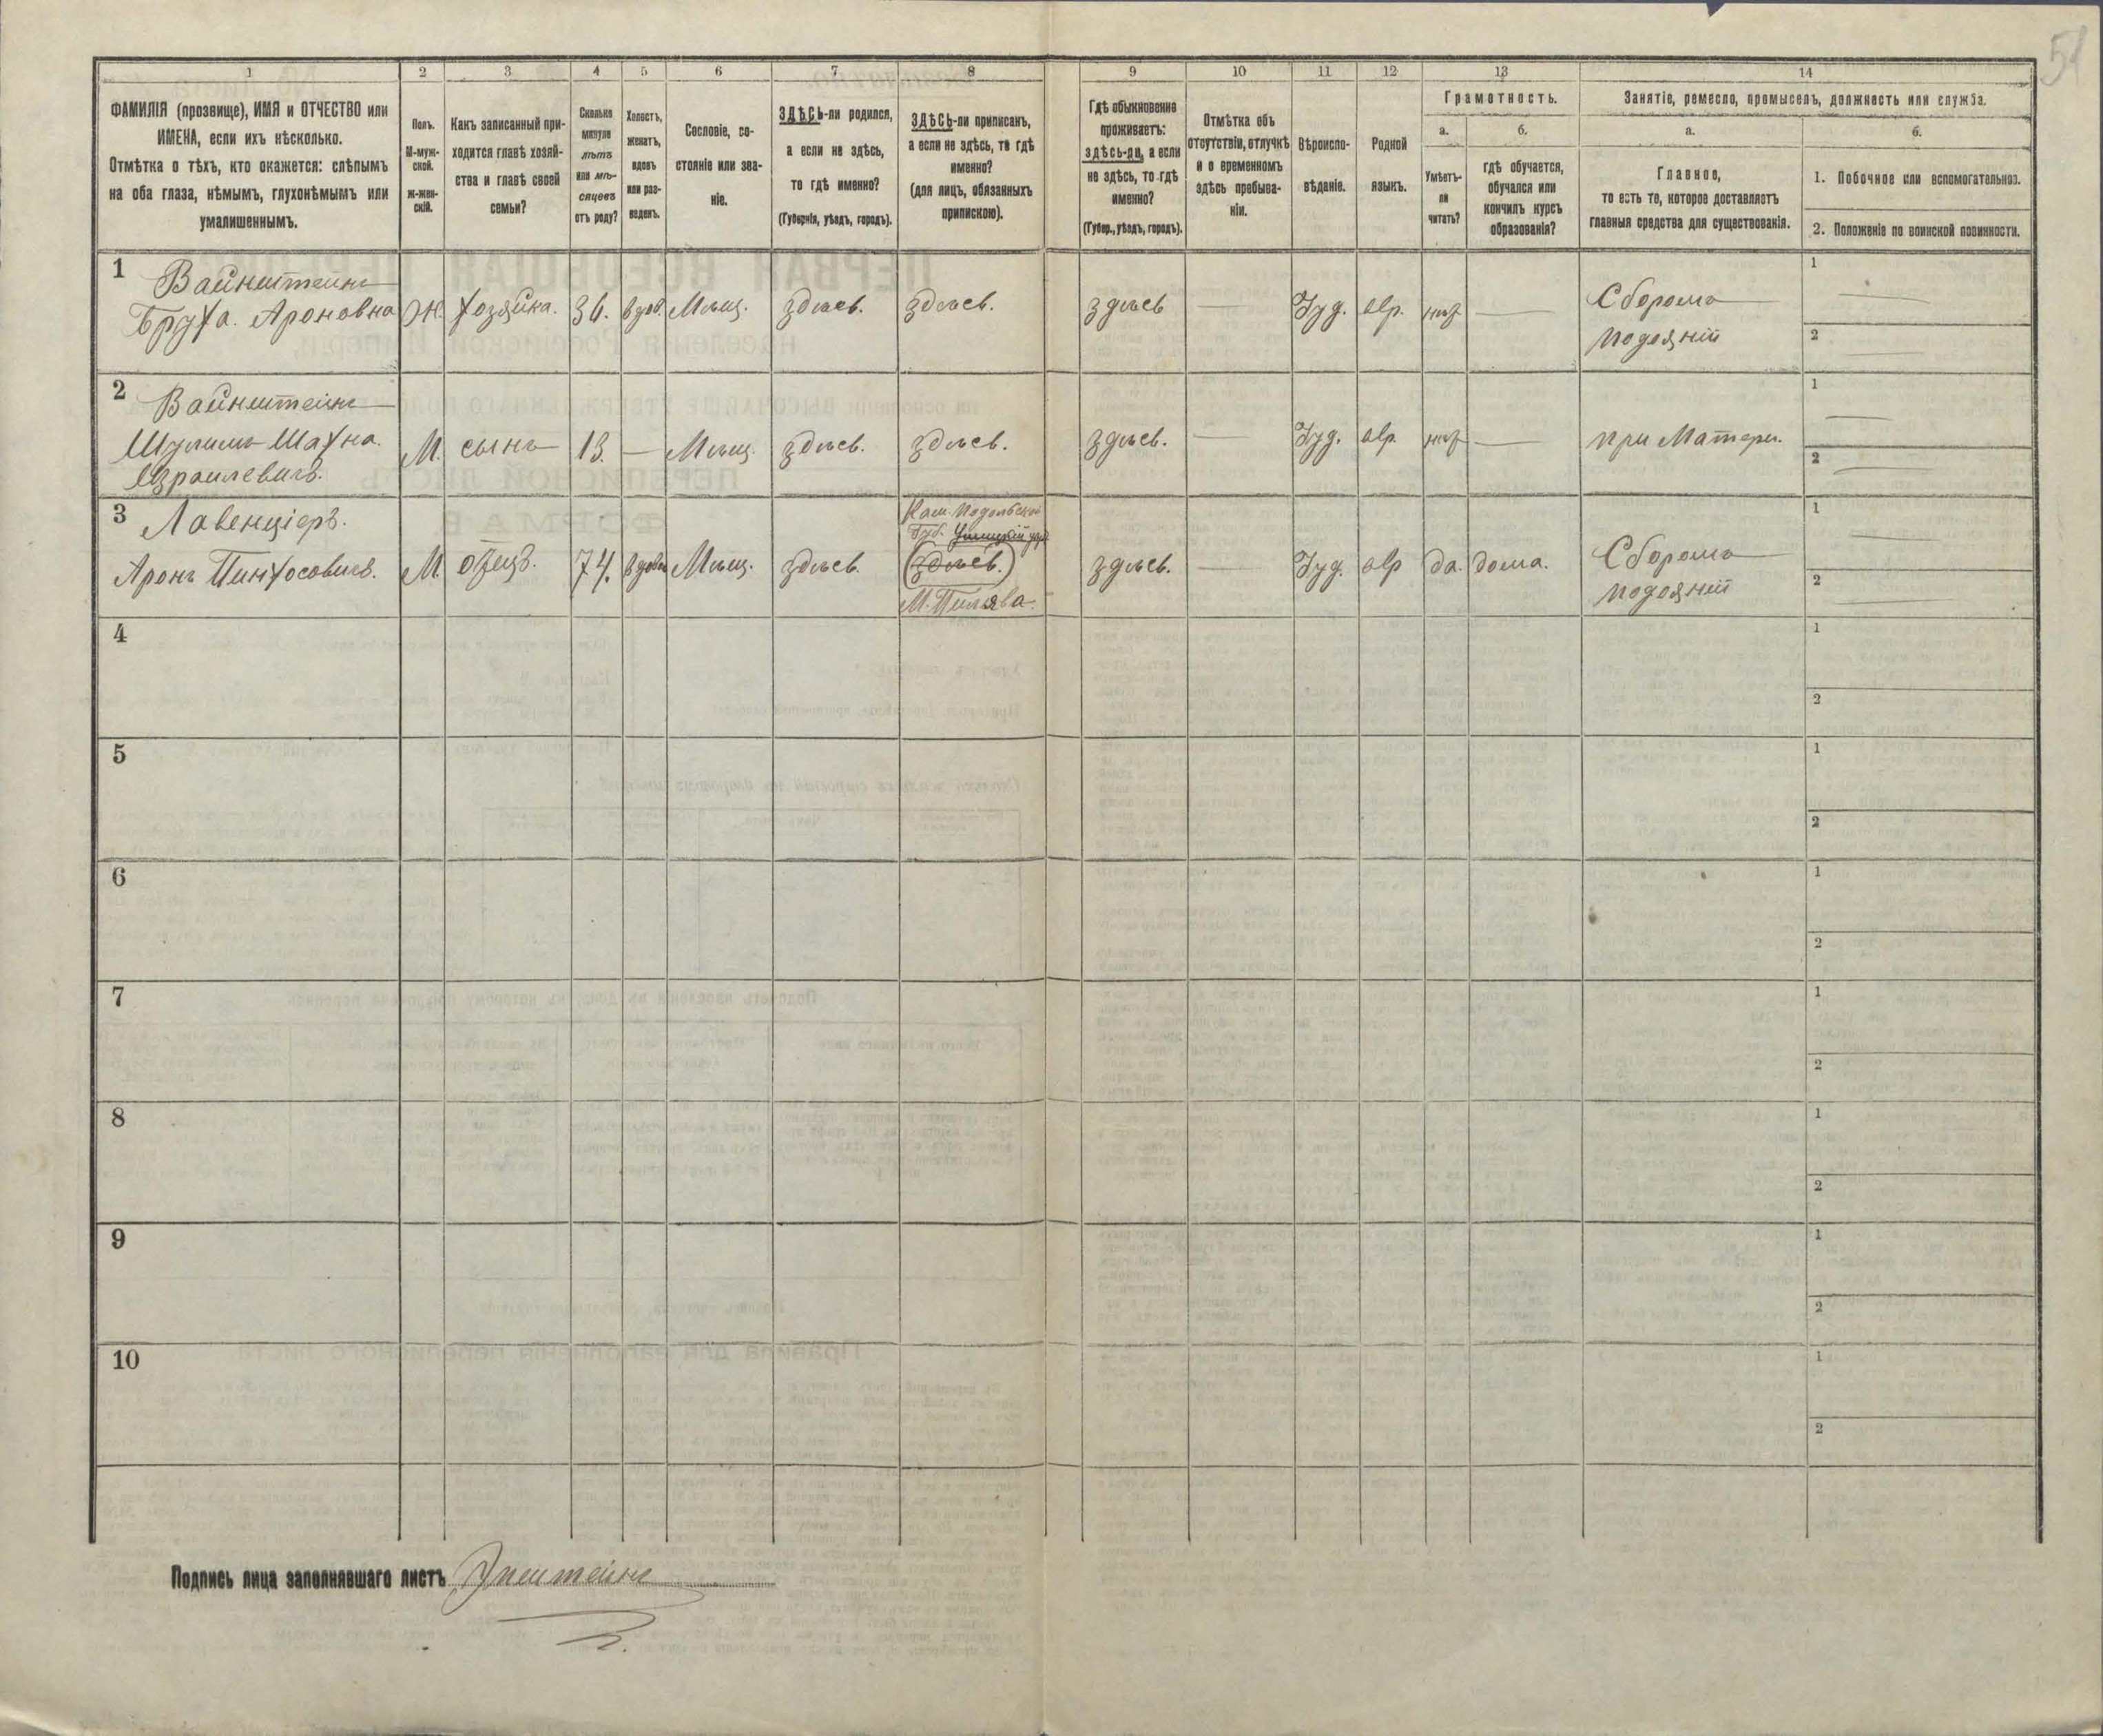 51
1 2 3 4 5 6 7 8 9 10 11 12 13 14
ФАМИЛІЯ (прозвище), ИМЯ и ОТЧЕСТВО или
ИМЕНА, если ихъ нѣсколько.
Отмѣтка о тѣхъ, кто окажется: слѣпымъ
на оба глаза, нѣмымъ, глухонѣмымъ или
умалишеннымъ.
Полъ.
М-муж-
ской.
Ж-жен-
скій.
Какъ записанный при-
ходится главѣ хозяй-
ства и главѣ своей
семьи?
Сколько
минуло
лѣтъ
или мѣ-
сяцевъ
отъ роду?
Холостъ,
женатъ,
вдовъ
или раз-
веденъ.
Сословіе, со-
стояніе или зва-
ніе.
ЗДѢСЬ-ли родился,
а если не здѣсь,
то гдѣ именно?
(Губернія, уѣздъ, городъ).
ЗДѢСЬ-ли приписанъ,
а если не здѣсь, то гдѣ
именно?
(для лицъ, обязанныхъ
припискою).
Гдѣ обыкновенно
проживаетъ:
здѣсь-ли, а если
не здѣсь, то гдѣ
именно?
(Губер., уѣздъ, городъ).
Отмѣтка объ
отсутствіи, отлучкѣ
и о временномъ
здѣсь пребыва-
ніи.
Вѣроиспо-
вѣданіе.
Родной
языкъ.
Грамотность.
а.
Умѣетъ-
ли
читать?
б.
гдѣ обучается,
обучался или
кончилъ курсъ
образованія?
Занятіе, ремесло, промыселъ, должность или служба.
а.
Главное,
то есть то, которое доставляетъ
главныя средства для существованія.
б.
1. Побочное или вспомогательное.
2. Положеніе по воинской повинности.
1 Вайнштейнъ
Бруха. Ароновна Ж. хозяйка. 36. вдов. Мѣщ. здѣсь. здѣсь. здѣсь — Іуд. евр. нѣт — Сборомъ
подояній
1
2
2 Вайнштейнъ
Шулимъ Шахна.
Израилевичъ. М. сынъ 13. — Мѣщ. здѣсь. здѣсь. здѣсь. — Іуд. евр. нѣт — при Матери.
1
2
3 Лавенціеръ.
Аронъ Пинхосовичъ. М. отецъ. 74. вдовъ Мѣщ. здѣсь.
Подольской
Губ. Ушицкій уѣз
(здѣсь.)
М. Пилява
здѣсь. — Іуд. евр да. дома. Сборомъ
подояній
1
2
4
1
2
5
1
2
6
1
2
7
1
2
8
1
2
9
1
2
10
1
2
Подпись лица заполнявшаго листъ